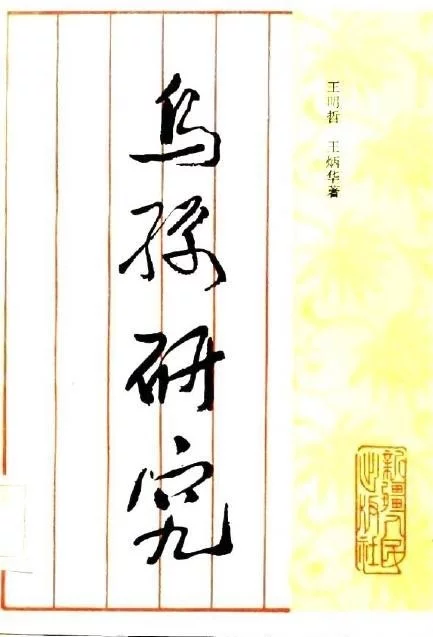 乌孙研究
王明哲 王炳华著
新疆人民
出版社